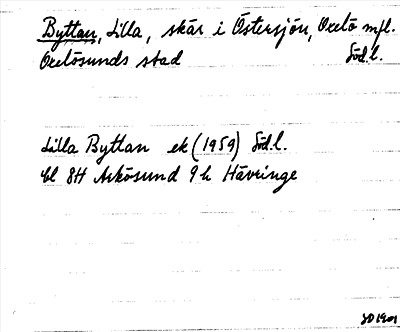 Byttan, Lilla, skär i Östersjön, Oxelö mfl.
Oxelösunds stad Söd.l.
Lilla Byttan ek (1959) Söd.l.
bl 8H Arkösund 9h Hävringe